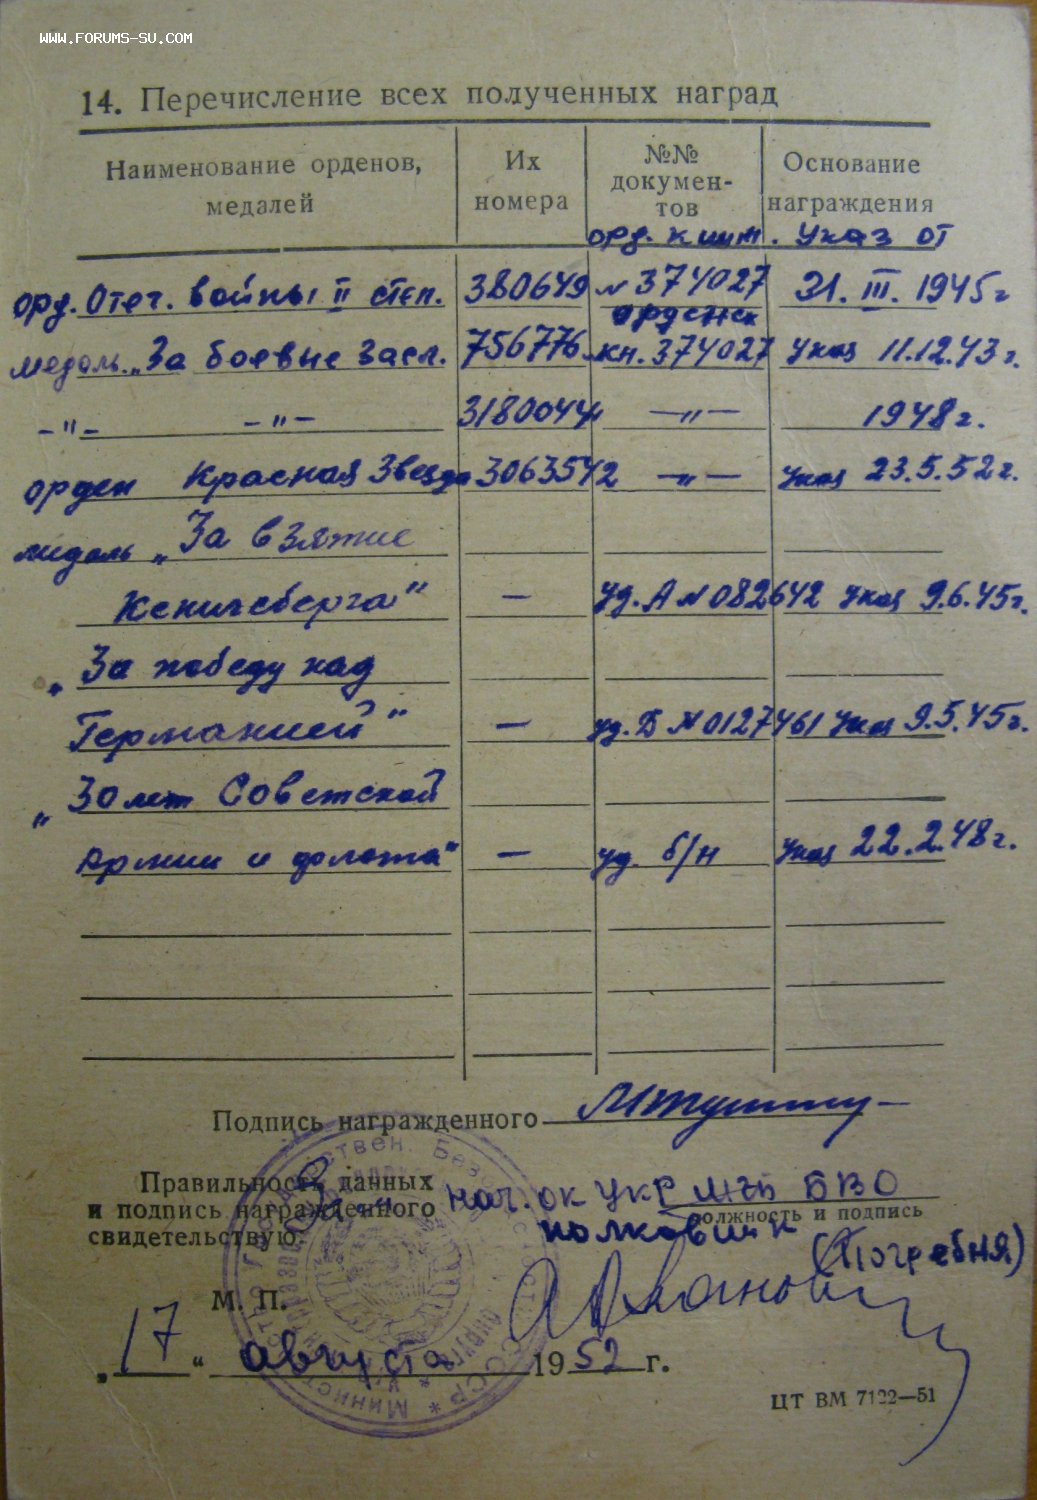 WWW.FORUMS-SU.COM
14. Перечисление всех полученных наград
Наименование орденов, медалей
Их номера
№№ документов
Основание награждения
орд. книж. Указ от
орд. Отеч. войны II степ. 380649 № 374027 31. III. 1945г
орденск
медаль „За боевые засл. 756776 кн. 374027 Указ 11.12.43г.
-"- -"- 3180044 -"- 1948г.
орден Красная Звезда 3063542 -"- Указ 23.5.52г.
медаль „За взятие
Кенигсберга" — уд. А № 082642 Указ 9.6.45г.
„За победу над
Германией" — уд. Б № 0127461 Указ 9.5.45г.
„30 лет Советской
Армии и флота" — уд. б/н Указ 22.2.48г.
Подпись награжденного
Правильность данных
и подпись награжденного
свидетельствую:
нач. ОК УКР МГБ БВО
должность и подпись
полковник
(Погребня)
М. П.
„17" августа 1952 г.
ЦТ ВМ 7122—51